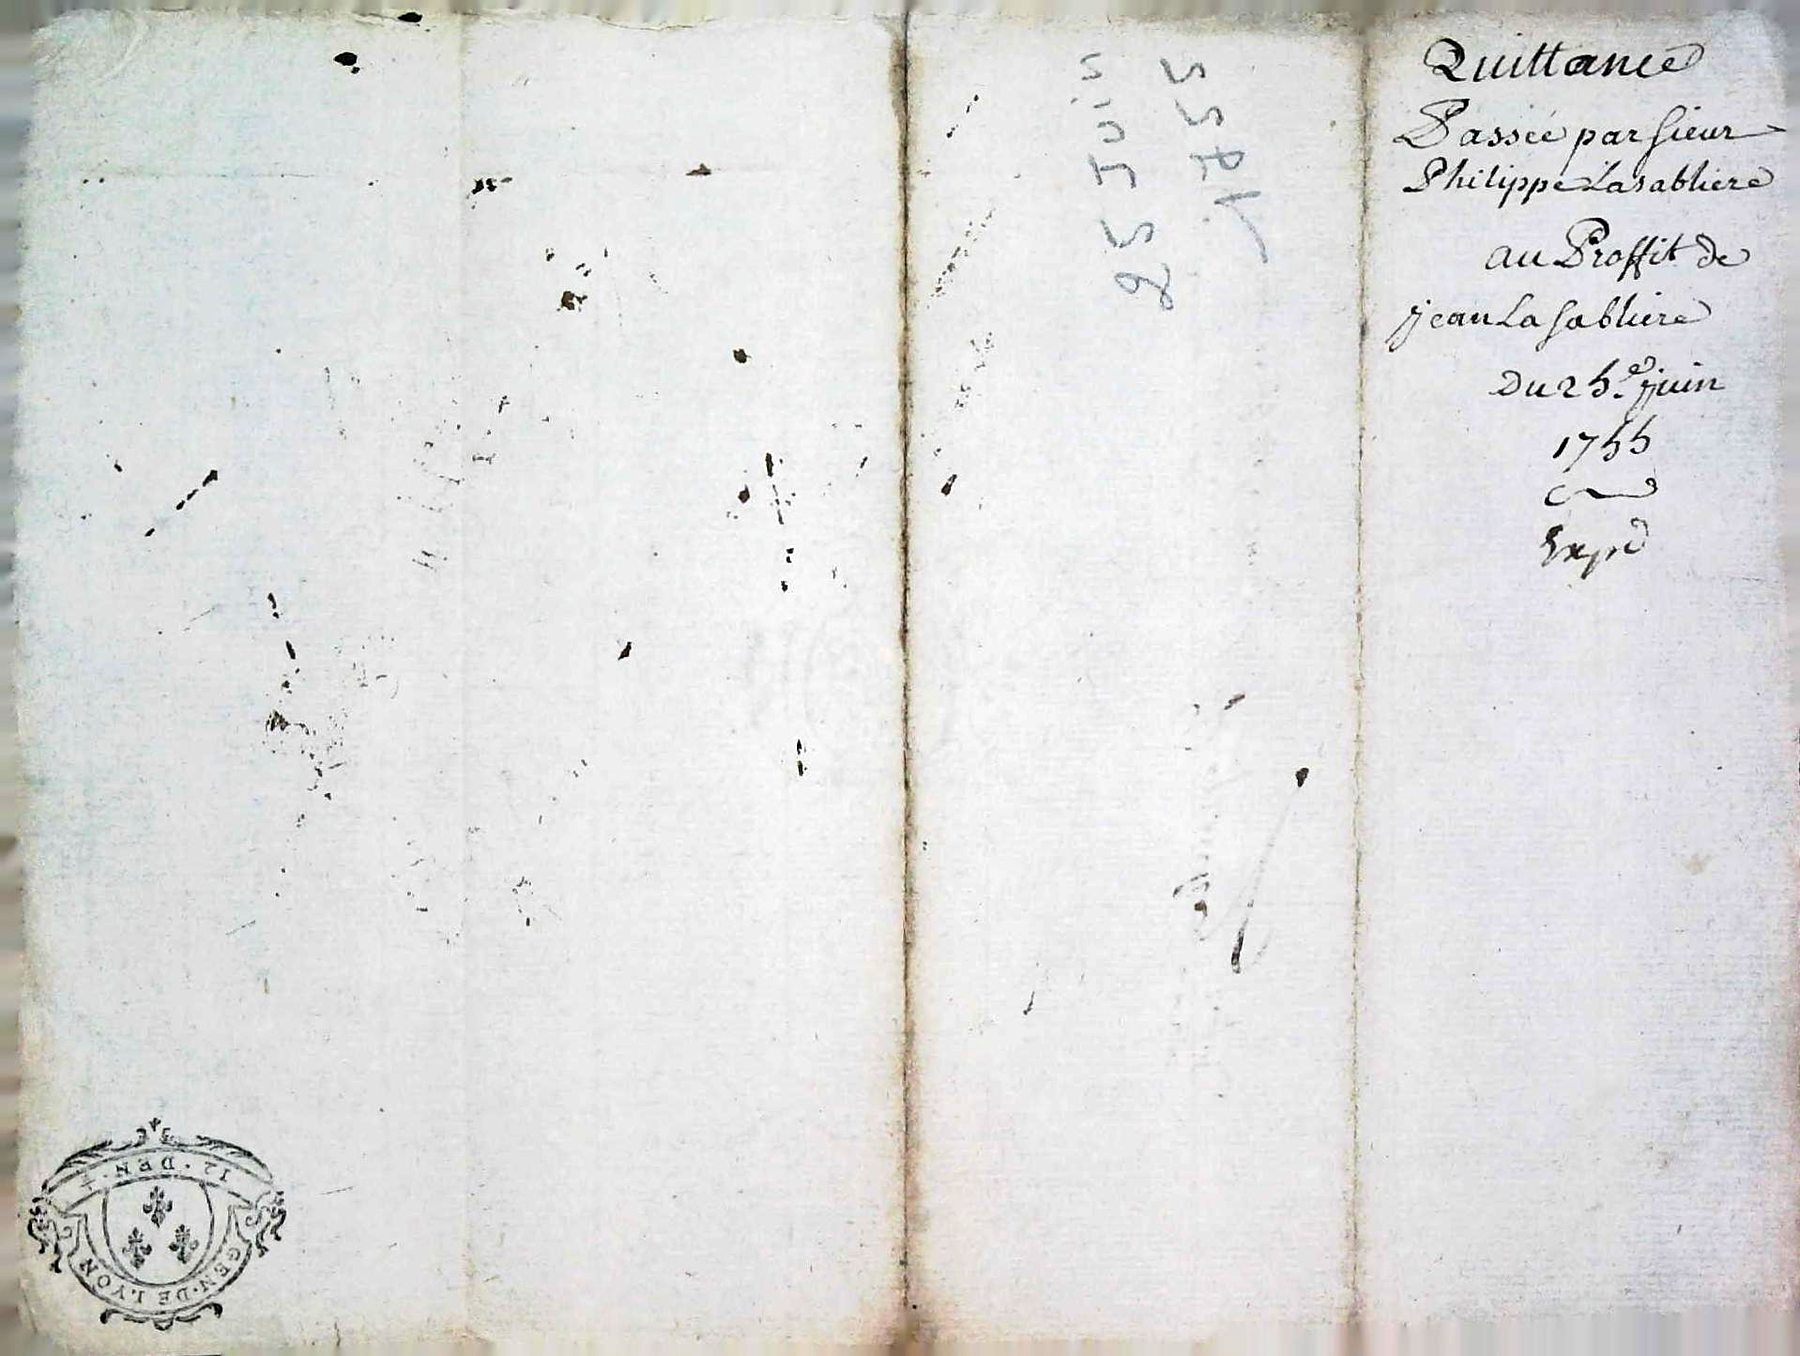 Quittance
Passée par sieur
Philippe Lasabliere
au Proffit de
jean La sabliere
Du 25.e juin
1755
Expd
25 Juin
1755
12. DEN.
GEN. DE LYON